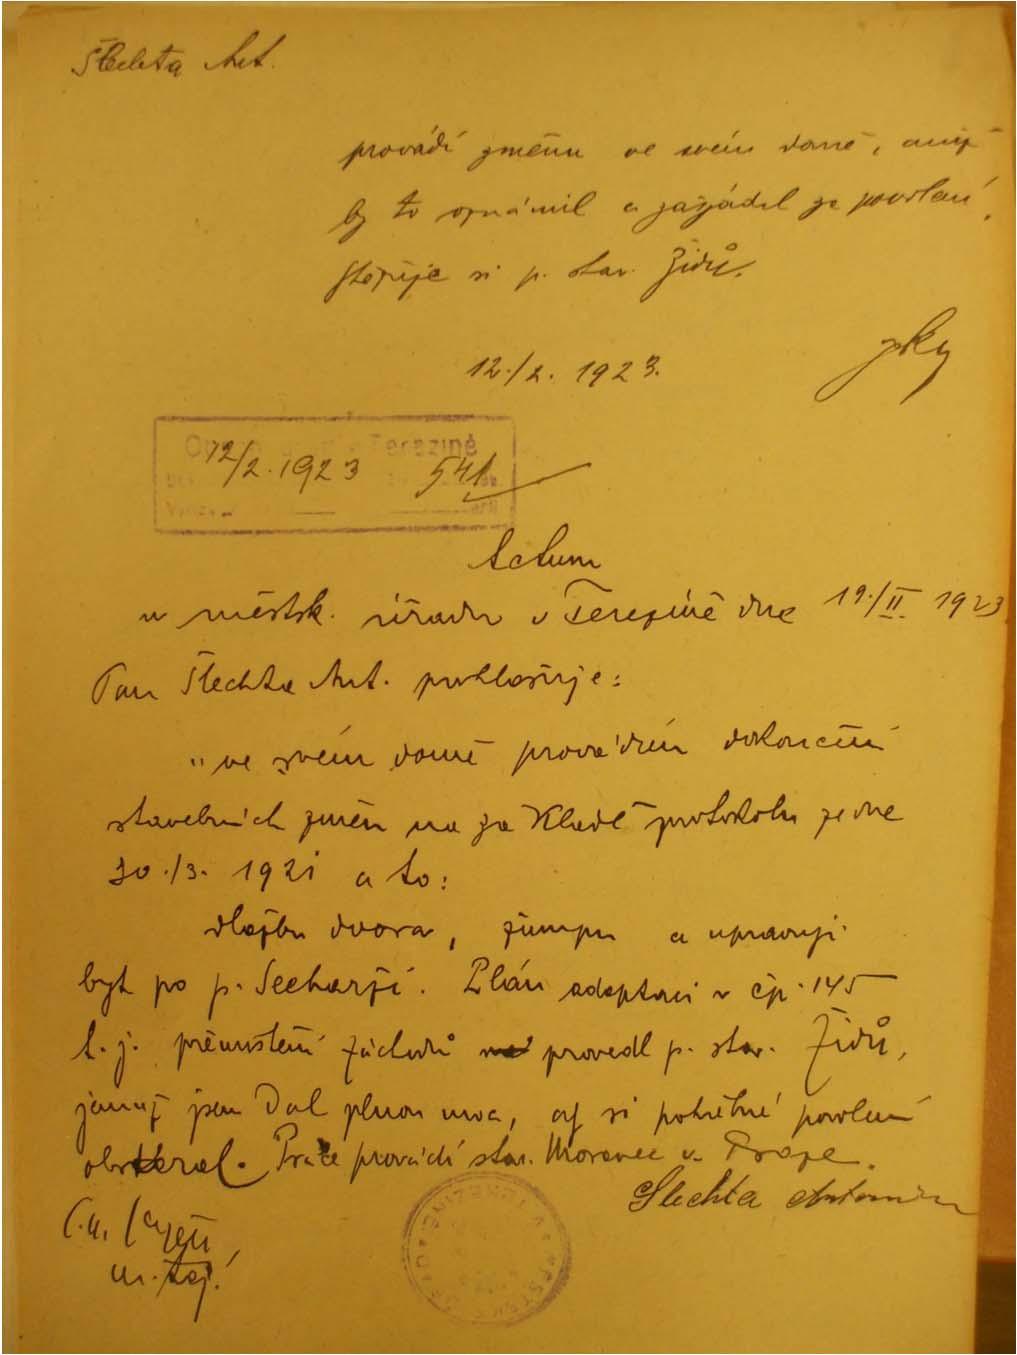 Šlechta Ant.
provádí změnu ve svém domě, aniž
by to oznámil a zažádal za povolení,
stěžuje si p. stav. Židů.
12./2. 1923.
Terezíně
12/2. 1923 541
Actum
v městsk. úřadu v Terezíně dne 19./II. 1923
Pan Šlechta Ant. prohlašuje:
„ve svém domě provádím dokončení
stavebních změn na základě protokolu ze dne
30./3. 1921 a to:
dlažbu dvora, žumpu a upravuji
byt po p. . Plán adaptaci v čp. 145
t. j. přemístění záchodů provedl p. stav. Židů,
jemuž jsem dal plnou moc, by si potřebné povolení
obstaral. Práce provádí stav. Moravec v Praze.
Šlechta Antonín